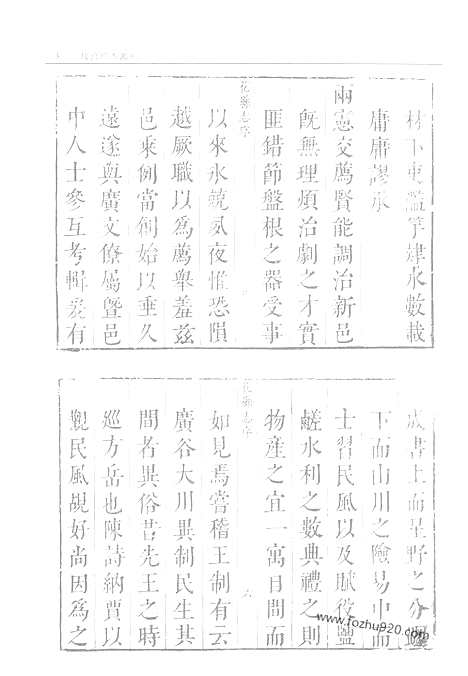 林下吏濫竽建水數載
庸庸謬承
兩憲交薦賢能調治新邑
旣無理煩治劇之才實
匪錯節盤根之器受事
花縣志序
以來氷兢夙夜惟恐隕
越厥職以爲薦舉羞茲
邑乘例當創始以垂久
遠遂與廣文僚屬曁邑
中人士參互考輯爰有
成書上而星野之分躔
下而山川之險易中而
士習民風以及賦役鹽
鹺水利之數典禮之則
物產之宜一寓目間而
花縣志序
如見焉嘗稽王制有云
廣谷大川異制民生其
間者異俗昔先王之時
巡方岳也陳詩納賈以
觀民風覘好尚因爲之
www.fozhu920.com